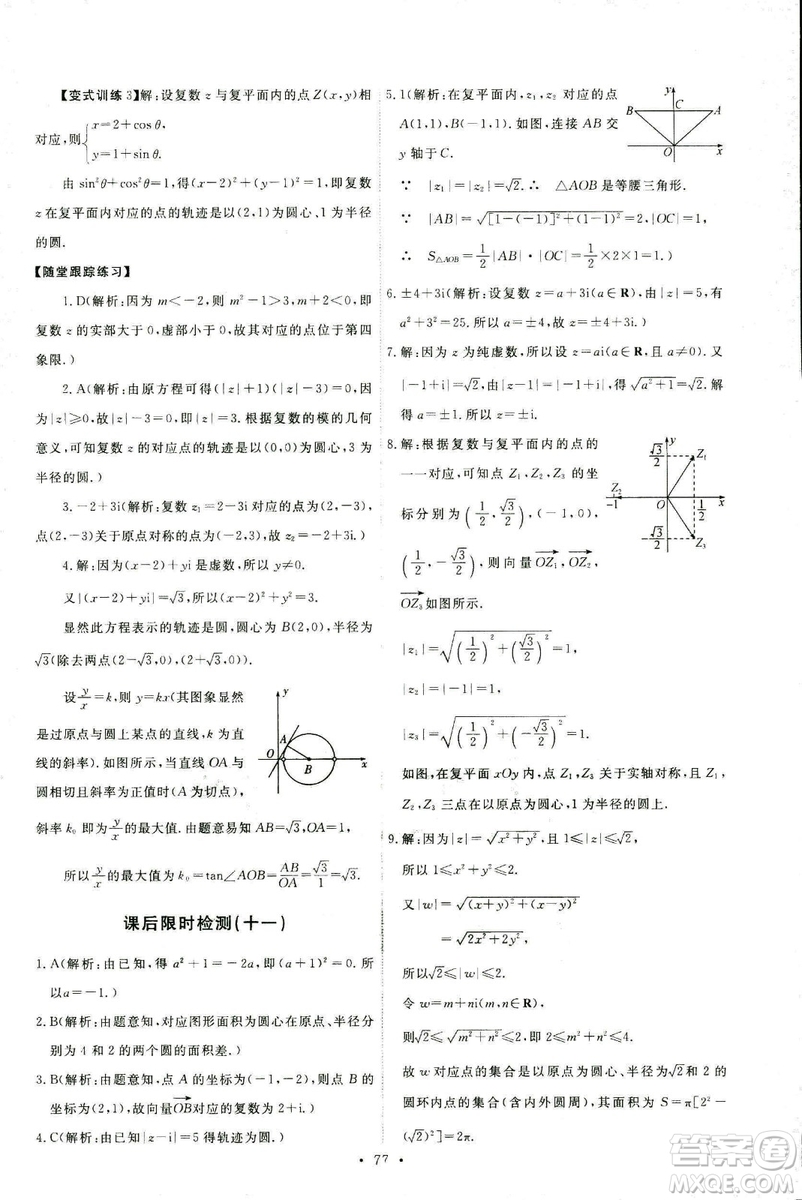 【变式训练3】解:设复数z与复平面内的点Z(x,y)相
对应,则{x=2+cosθ,
y=1+sinθ.
由 sin²θ+cos²θ=1,得(x-2)²+(y-1)²=1,即复数
z在复平面内对应的点的轨迹是以(2,1)为圆心、1为半径
的圆.
【随堂跟踪练习】
1.D(解析:因为 m<-2,所以 m²-1>3>0,m+2<0,即
复数z的实部大于0,虚部小于0,故其对应的点位于第四
象限.)
2.A(解析:由原方程可得(|z|+1)(|z|-3)=0.因为
|z|≥0,故|z|-3=0,即|z|=3.根据复数的模的几何
意义,可知复数z的对应点的轨迹是以原点为圆心,3为
半径的圆.)
3.-2+3i(解析:复数z₁=2-3i对应的点为(2,-3),
点(2,-3)关于原点对称的点为(-2,3),故z₂=-2+3i.)
4.解:因为(x-2)+yi是虚数,所以y≠0.
又|(x-2)+yi|=√3,所以(x-2)²+y²=3.
显然此方程表示的轨迹是圆,圆心为B(2,0),半径为
√3(除去两点(2-√3,0),(2+√3,0)).
设y/x=k,所以y=kx(其图象显然
是过原点与圆上某点的直线,k为直线
的斜率).如图所示,当直线OA与
圆相切且斜率为正值时(A为切点),
斜率k₀即为y/x的最大值.由题意易知AB=√3,OA=1,
所以y/x的最大值为k₀=tan∠AOB=AB/OA=√3/1=√3.
y
A
O
B
x
课后限时检测(十一)
1.A(解析:由已知,得a²+1=-2a,于是(a+1)²=0.所
以a=-1.)
2.B(解析:由题意知,对应图形面积为圆心在原点、半径分
别为4和2的两个圆的面积差.)
3.B(解析:由题意知,点A的坐标为(-1,-2),则点B的
坐标为(2,1),故向量OB→对应的复数为2+i.)
4.C(解析:由已知,得|z-i|=5符合题意.)
5.1(解析:在复平面内,z₁,z₂对应的点
A(1,1),B(-1,1).如图,连接AB交
y轴于C.
y
B
C
A
O
x
∵ |z₁|=|z₂|=√2.∴ △AOB是等腰三角形.
∵ |AB|=√([1-(-1)]²+(1-1)²)=2,|OC|=1,
∴ S△AOB=1/2|AB|·|OC|=1/2×2×1=1.)
6.±4+3i(解析:设复数z=a+3i(a∈R),由|z|=5,有
a²+3²=25.所以a=±4.所以z=±4+3i.)
7.解:因为z为纯虚数,所以设z=ai(a∈R,且a≠0).又
|z-1|=|-1+i|,则|ai-1|=|-1+i|.所以√(a²+1)=
√2.所以a=±1.所以z=±i.
8.解:根据复数与复平面内的点的
一一对应,可知点Z₁,Z₂,Z₃的坐
标分别为(1/2,√3/2),(-1,0),
(1/2,-√3/2),则向量OZ₁→,OZ₂→,
OZ₃→如图所示.
y
√3/2
Z₁
Z₂
-1
O
1/2
x
-√3/2
Z₃
|z₁|=√((1/2)²+(√3/2)²)=1,
|z₂|=|-1|=1,
|z₃|=√((1/2)²+(-√3/2)²)=1.
如图,在复平面xOy内,点Z₁,Z₃关于实轴对称,且
Z₁,Z₂,Z₃三点在以原点为圆心,1为半径的圆上.
9.解:因为|z|=√(x²+y²),且1≤|z|≤√2,
所以1≤x²+y²≤2.
又|w|=√((x+y)²+(x-y)²)
=√(2x²+2y²),
所以√2≤|w|≤2.
令w=m+ni(m,n∈R),
则√2≤√(m²+n²)≤2,即2≤m²+n²≤4.
故w对应点的集合是以原点为圆心、半径为√2和2的
圆环内点的集合(含内外圆周),其面积S=π[2²-
(√2)²]=2π.
77
答案圈
MXQE.COM